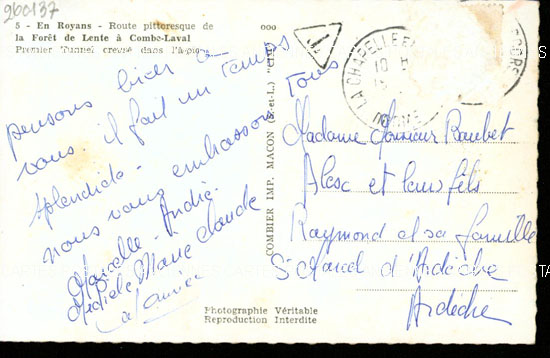 260137
5 - En Royans - Route pittoresque de
la Forêt de Lente à Combe-Laval
Premier Tunnel creusé dans
pensons bien à
vous. il fait un temps
splendide.
nous vous embrassons tous
Marcelle - André -
Marie Claude
COMBIER IMP. MACON (S.-et-L.) "CIM"
T
LA CHAPELLE E
10 H
DROME
Madame Monsieur Baubet
et leurs fils
Raymond et sa famille
St Marcel d'Ardèche
Ardèche
Photographie Véritable
Reproduction Interdite